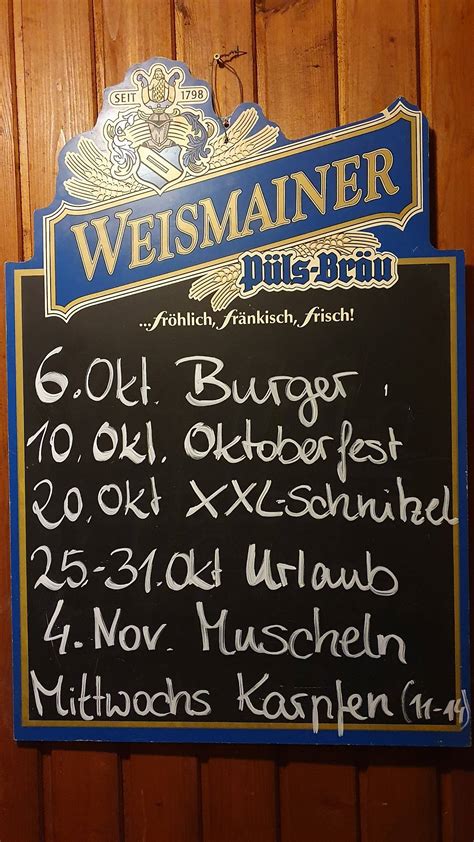 SEIT 1798
WEISMAINER
Püls-Bräu
...fröhlich, fränkisch, frisch!
6. Okt. Burger
10. Okt. Oktoberfest
20. Okt XXL-Schnitzel
25.-31. Okt Urlaub
4. Nov. Muscheln
Mittwochs Karpfen (11-14)